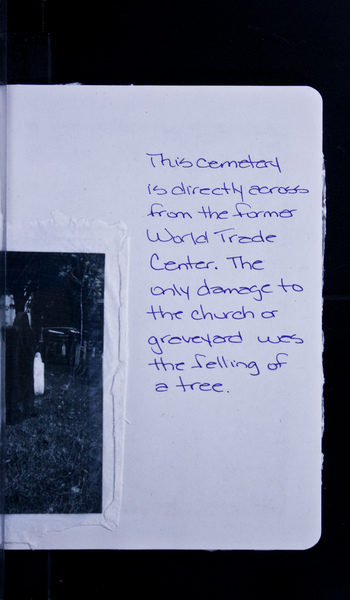 This cemetery
is directly across
from the former
World Trade
Center. The
only damage to
the church or
graveyard was
the felling of
a tree.